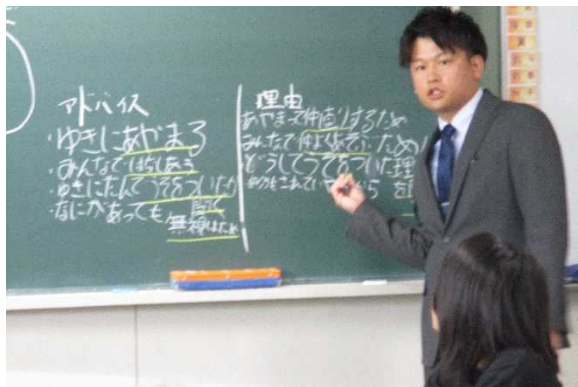 アドバイス
・ゆきにあやまる
・みんなではなしあう
・ゆきにたんてうそをついたか
・なにがあっても
無視はだめ
理由
あやまって仲直りするため
みんなで仲よくあそぶため
どうしてうそをついた理
から